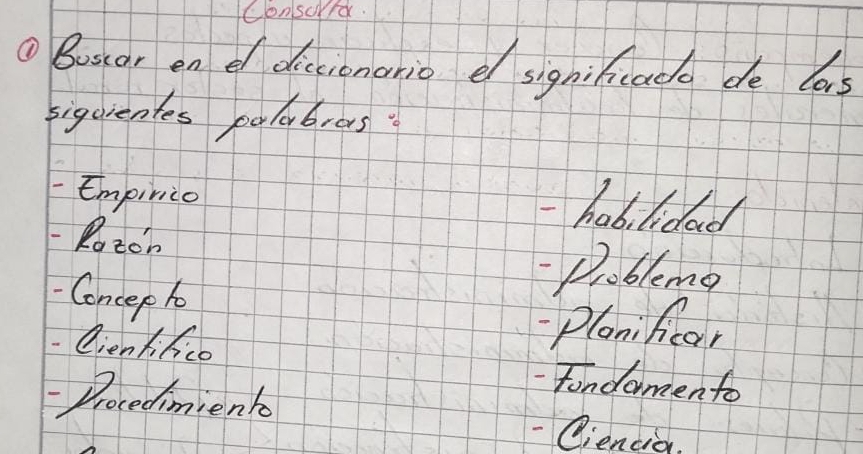 Consulta.
① Buscar en el diccionario el significado de las
siguientes palabras:
- Empirico
- Razón
- Concepto
- Cientifico
- Procedimiento
- habilidad
- Problema
- Planificar
- Fundamento
- Ciencia.